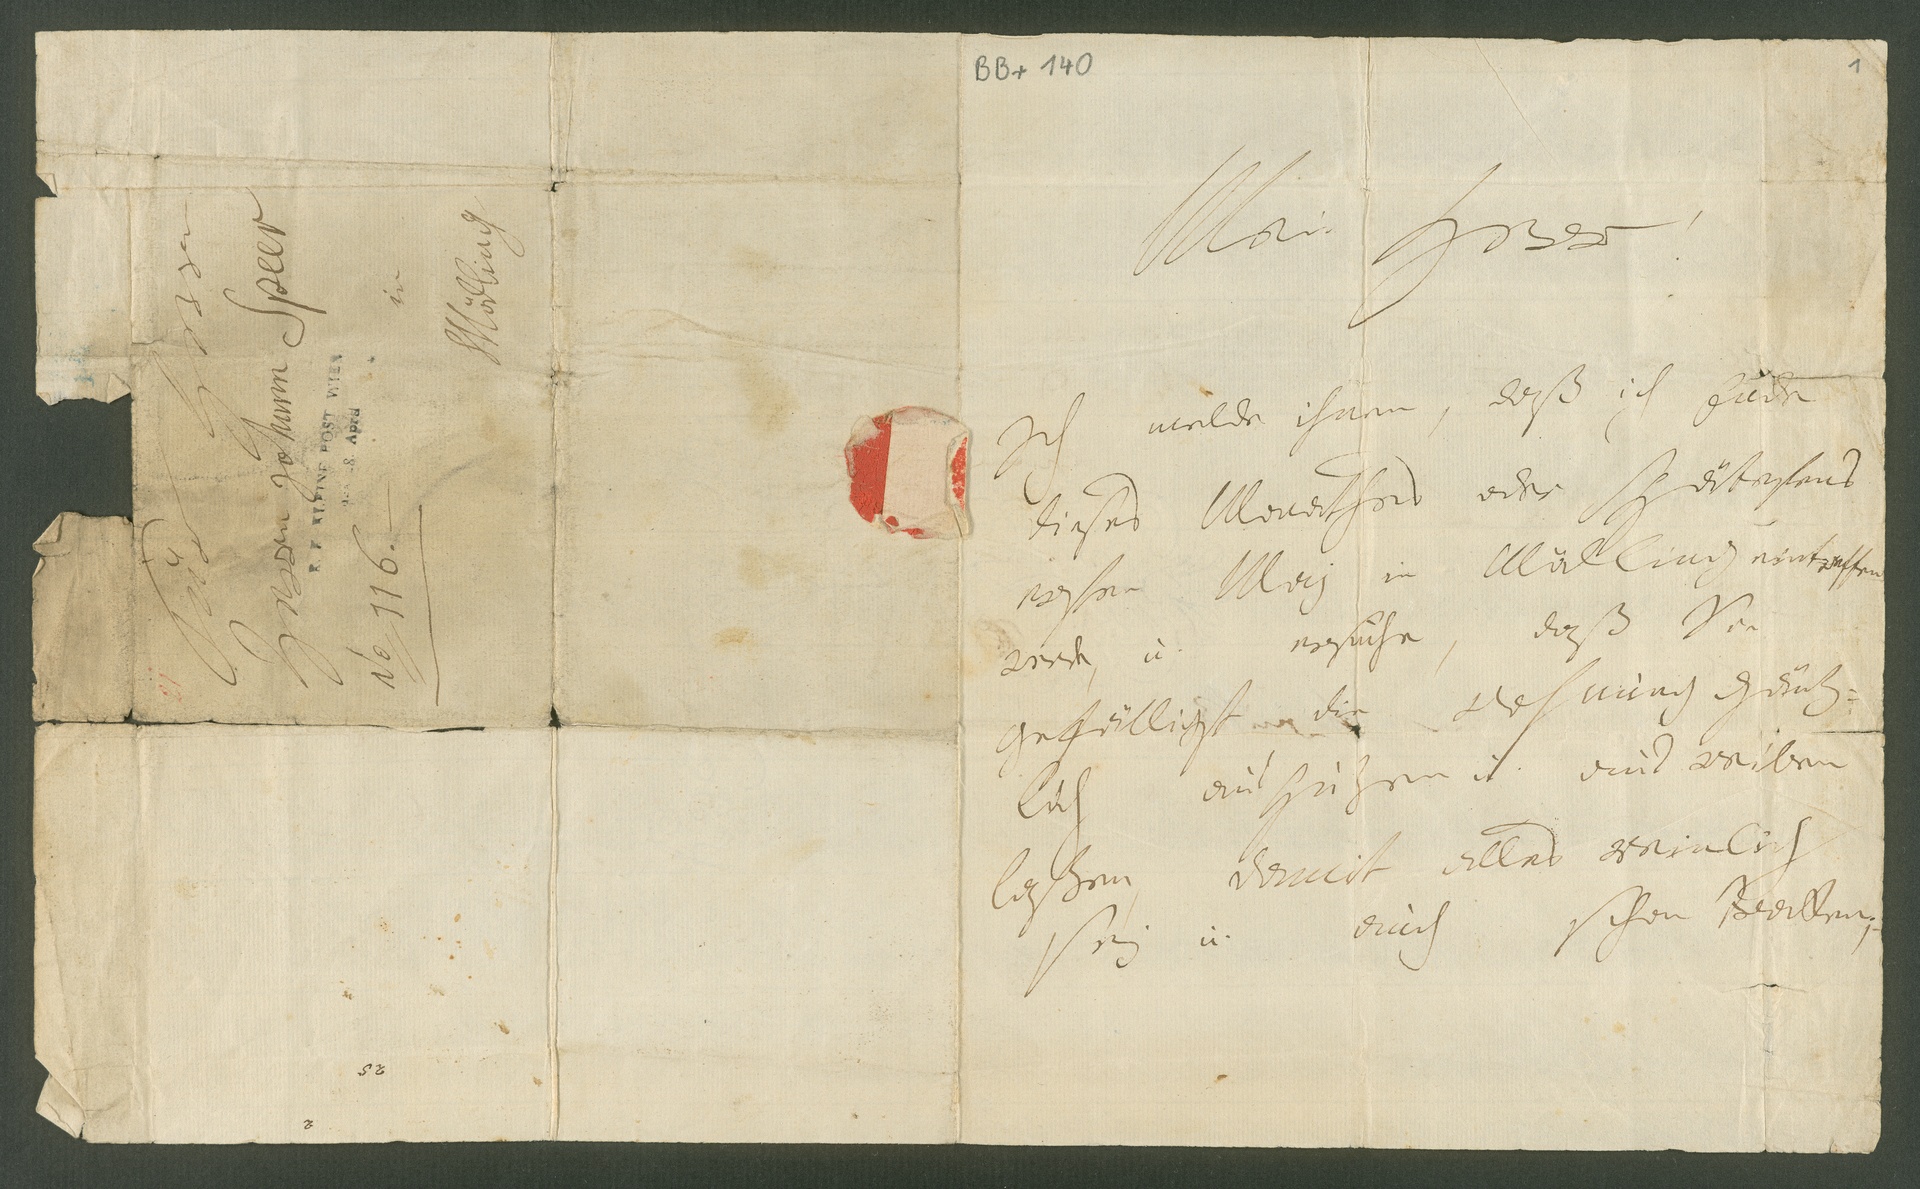 BB+ 140
1
Mein Herr!
Ich melde ihnen, daß ich Ende
dieses Monathes oder spätestens
ersten May in Mödling eintreffen
werde, u. ersuche, daß Sie
gefälligst die wohnung gänz=
lich ausputzen u. ausreiben
laßen, damit alles reinlich
sey u. auch schon trocken;
An
Herrn Johann Speer
in
Mödling
No 116.
K. K. KLEINE POST WIEN
8. April